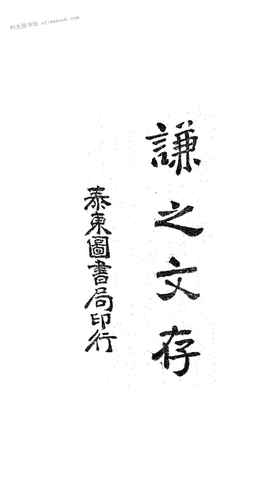 謙之文存
泰東圖書局印行